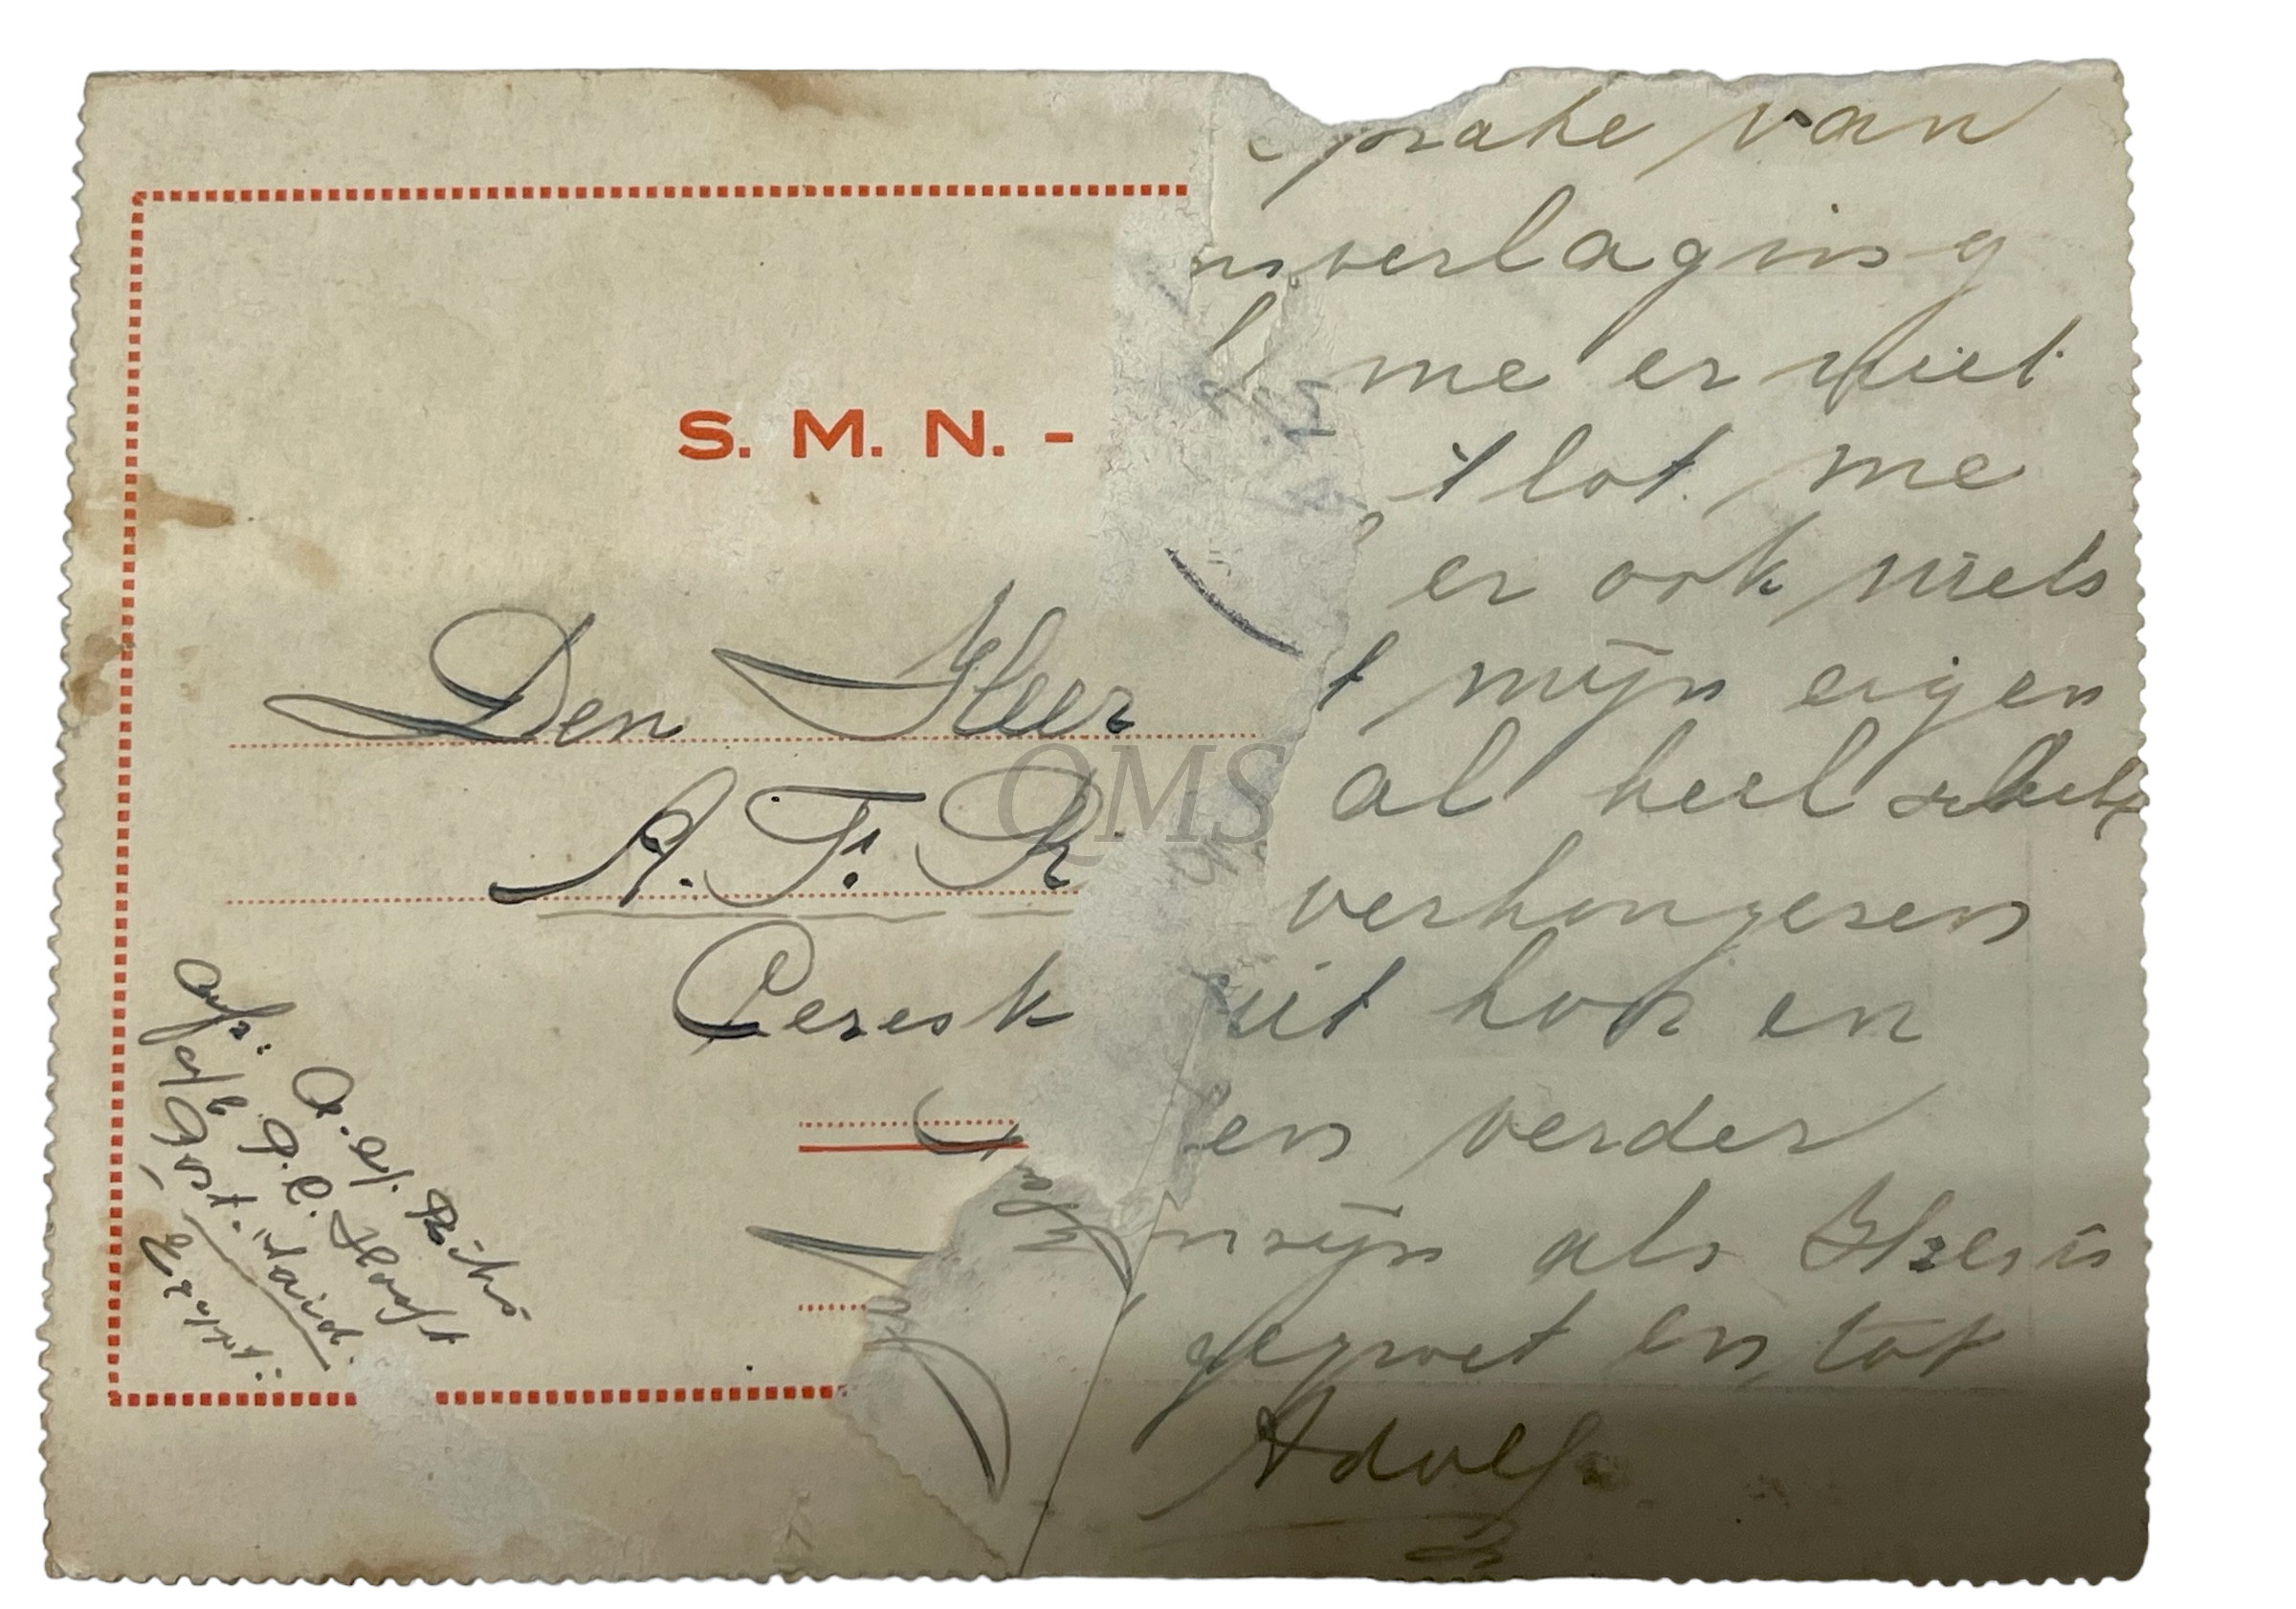 S. M. N. -
Den Heer
A. F. R
Ceresk
afz: A. W.
a/b P. C. Hooft
Port. Said.
Egypt:
prake van
nsverlaging
me er niet
t lot me
er ook niets
t mijn eigen
al heel
verhongeren
uit hoor en
en verder
mijn als
gegroet en tot
Adolf.
QMS